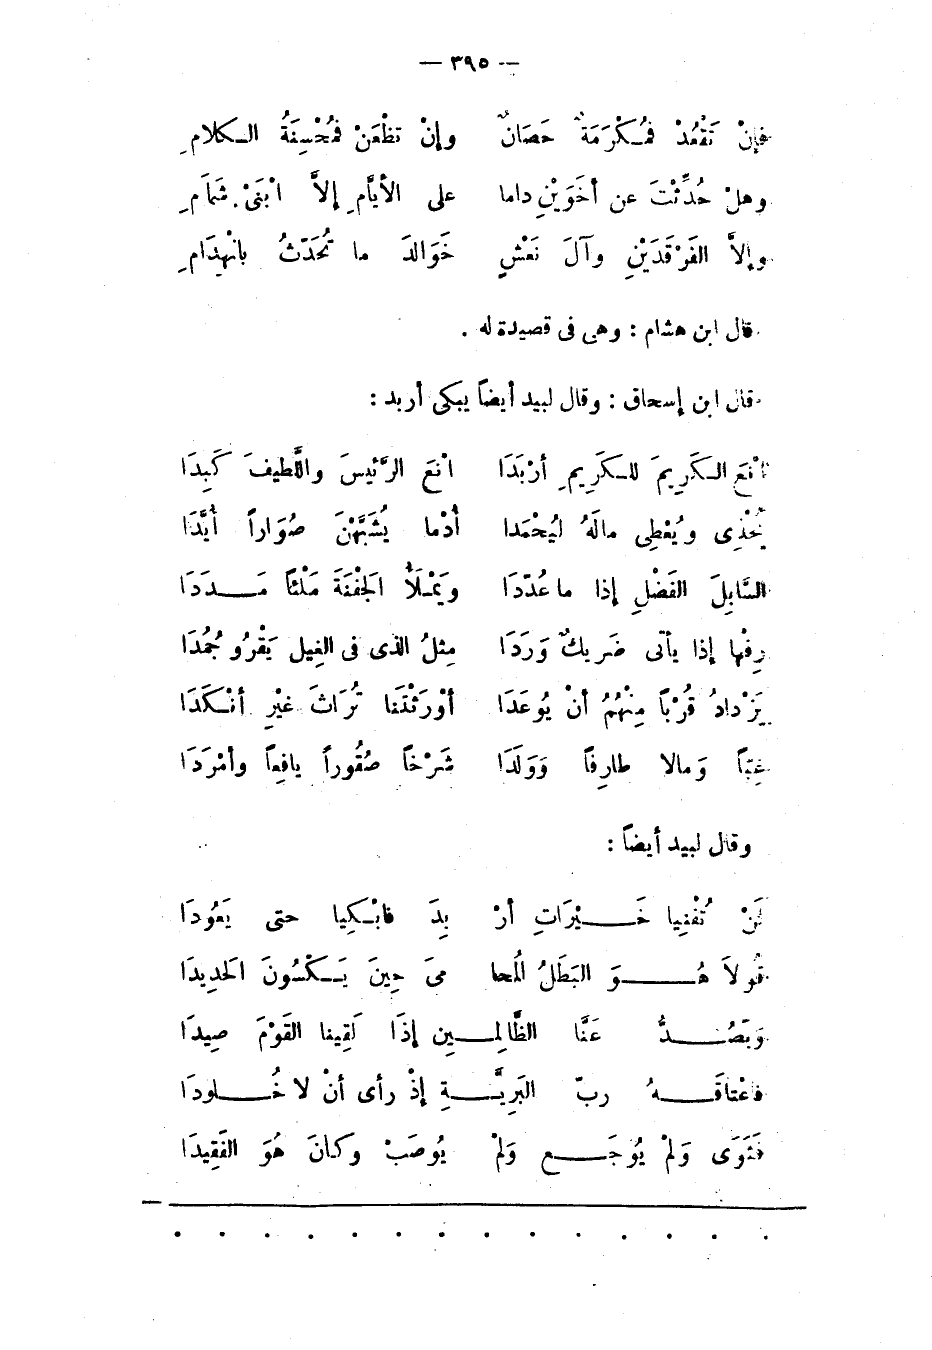 — ٣٩٥ —
فإنْ تَقْعُدْ فَمُكْرَمَةٌ حَصَانٌ وإنْ تظْعَنْ فَمُحْسِنَةُ الكلامِ
وهلْ حُدِّثْتَ عن أخَوَيْنِ داما على الأيَّامِ إلاَّ ابْنَىْ شَمَامِ
وإلاَّ الفَرْقَدَيْنِ وآلَ نَعْشٍ خَوَالدَ ما تُحَدّثُ بانْهِدَامِ
قال ابن هشام : وهى فى قصيدة له .
قال ابن إسحاق : وقال لبيد أيضاً يبكى أربد :
انْعَ الكَرِيمَ للكَرِيمِ أرْبَدَا انْعَ الرَّئيسَ واللَّطيفَ كَبِدَا
يُحْذِى ويُعْطِى مالَهُ ليُحْمَدا أُدْما يُشَبَّهْنَ صُوَاراً أُبَّدَا
السَّابِلَ الفَضْلِ إذا ما عُدّدَا ويَمْلَأُ الجَفْنَةَ مَلْئاً مَدَدَا
رِفْها إذا يأتى ضَرِيكٌ وَرَدَا مِثلُ الذى فى الغِيل يَقْرُو جُمُدَا
يَزْدادُ قُرْباً مِنْهُمُ أنْ يُوعَدَا أوْرَثْتَنا تُرَاثَ غيْرِ أنْكَدَا
غِبّاً وَمالا طارِفاً وَوَلَدَا شَرْخاً صُقُوراً يافِعاً وأمْرَدَا
وقال لبيد أيضاً :
لَنْ تُفْنِيا خَيْرَاتِ أرْ بِدَ فابْكِيا حتى يَعُودَا
قُولاَ هُوَ البَطَلُ المُحا مىَ حِينَ يَكْسُونَ الحَدِيدَا
وَيَصُدُّ عَنَّا الظَّالِمِينِ إذَا لَقِينا القَوْمَ صِيدَا
فاعْتاقَهُ ربّ البَرِيَّةِ إذْ رأى أنْ لا خُلودَا
فَثَوَى وَلَمْ يُوجَع وَلَمْ يُوصَبْ وكانَ هُوَ الفَقِيدَا